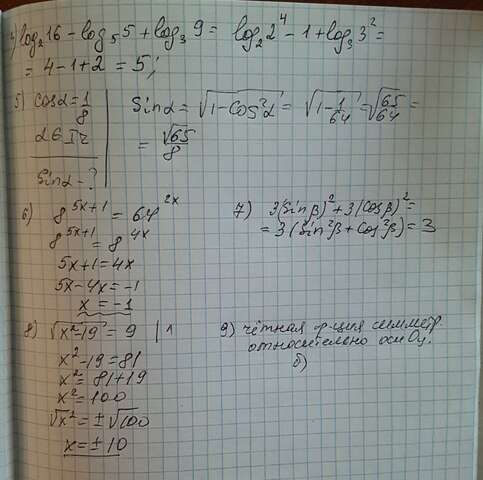 4) log₂16 - log₅5 + log₃9 = log₂2⁴ - 1 + log₃3² =
= 4-1+2 = 5;
5) cosα = 1/8
α ∈ I ч
sinα - ?
sinα = √(1-cos²α) = √(1-1/64) = √(65/64) =
= √65/8
6) 8^(5x+1) = 64^(2x)
8^(5x+1) = 8^(4x)
5x+1 = 4x
5x-4x = -1
x = -1
7) 3(sinβ)² + 3(cosβ)² =
= 3(sin²β + cos²β) = 3
8) √(x²-19) = 9 | ^
x²-19 = 81
x² = 81+19
x² = 100
√x² = ±√100
x = ±10
9) чётная ф-ция симметр.
относительно оси Oy.
б)